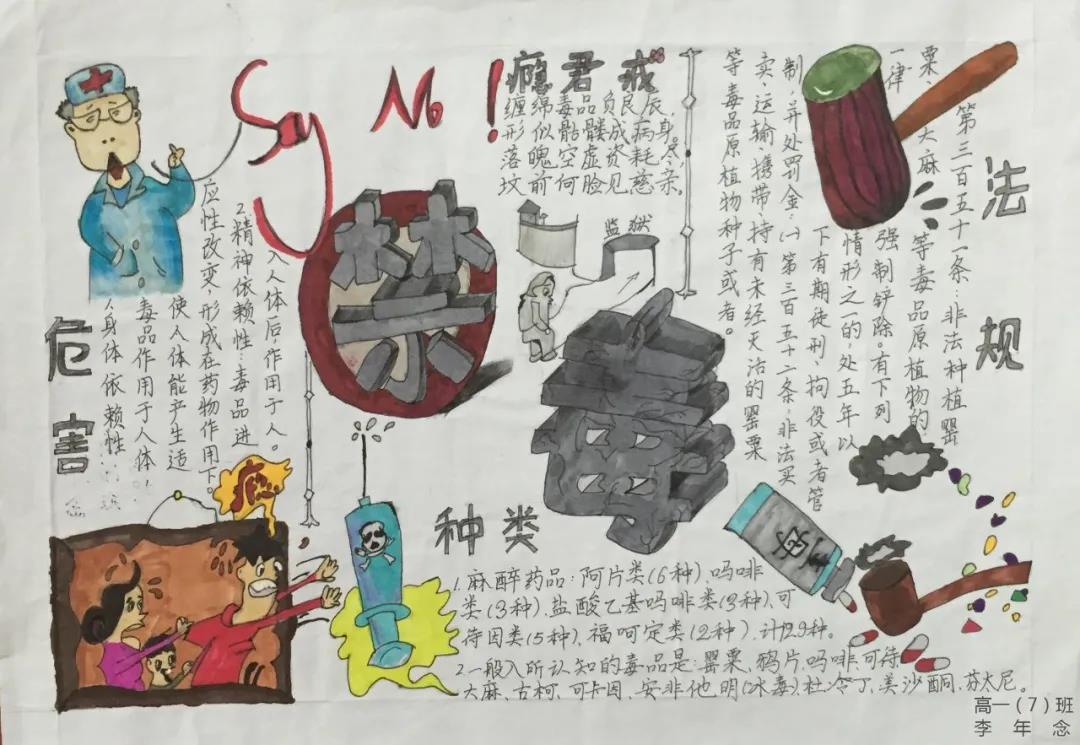 Say No！
瘾君戒
缠绵毒品负良辰，
形似骷髅成病身。
落魄空虚资耗尽，
坟前何脸见慈亲。
监狱
禁
毒
法规
第三百五十一条：非法种植罂
粟、大麻等毒品原植物的
一律强制铲除。有下列
情形之一的，处五年以
下有期徒刑、拘役或者管
制，并处罚金:(一)第三百五十二条：非法买
卖、运输、携带、持有未经灭活的罂粟
等毒品原植物种子或者。
危害
1.身体依赖性
毒品作用于人体，
使人体能产生适
应性改变，形成在药物作用下。
2.精神依赖性：毒品进
入人体后，作用于人。
瘾
种类
1.麻醉药品：阿片类(6种)、吗啡
类(3种)、盐酸乙基吗啡类(3种)、可
待因类(5种)，福呵定类(2种)，计129种。
2.一般入所认知的毒品是：罂粟，鸦片，吗啡，可待
大麻、古柯、可卡因、安非他明(冰毒)、杜冷丁、美沙酮、芬太尼。
高一(7)班
李年念